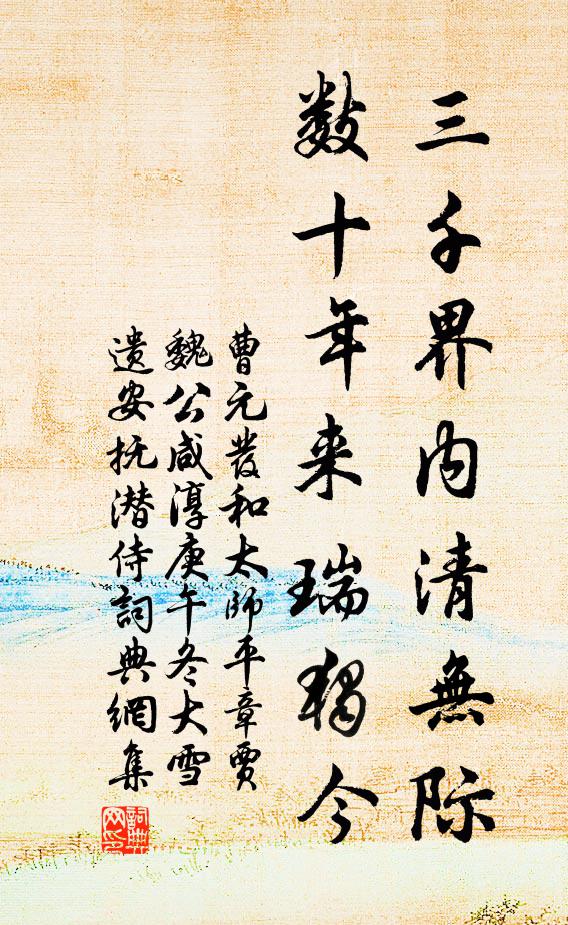 三千界内清無际
数十年来瑞独今
曹元發和太師平章賈
魏公咸淳庚午冬大雪
遗安抚潜侍詞典網集
詞典网印